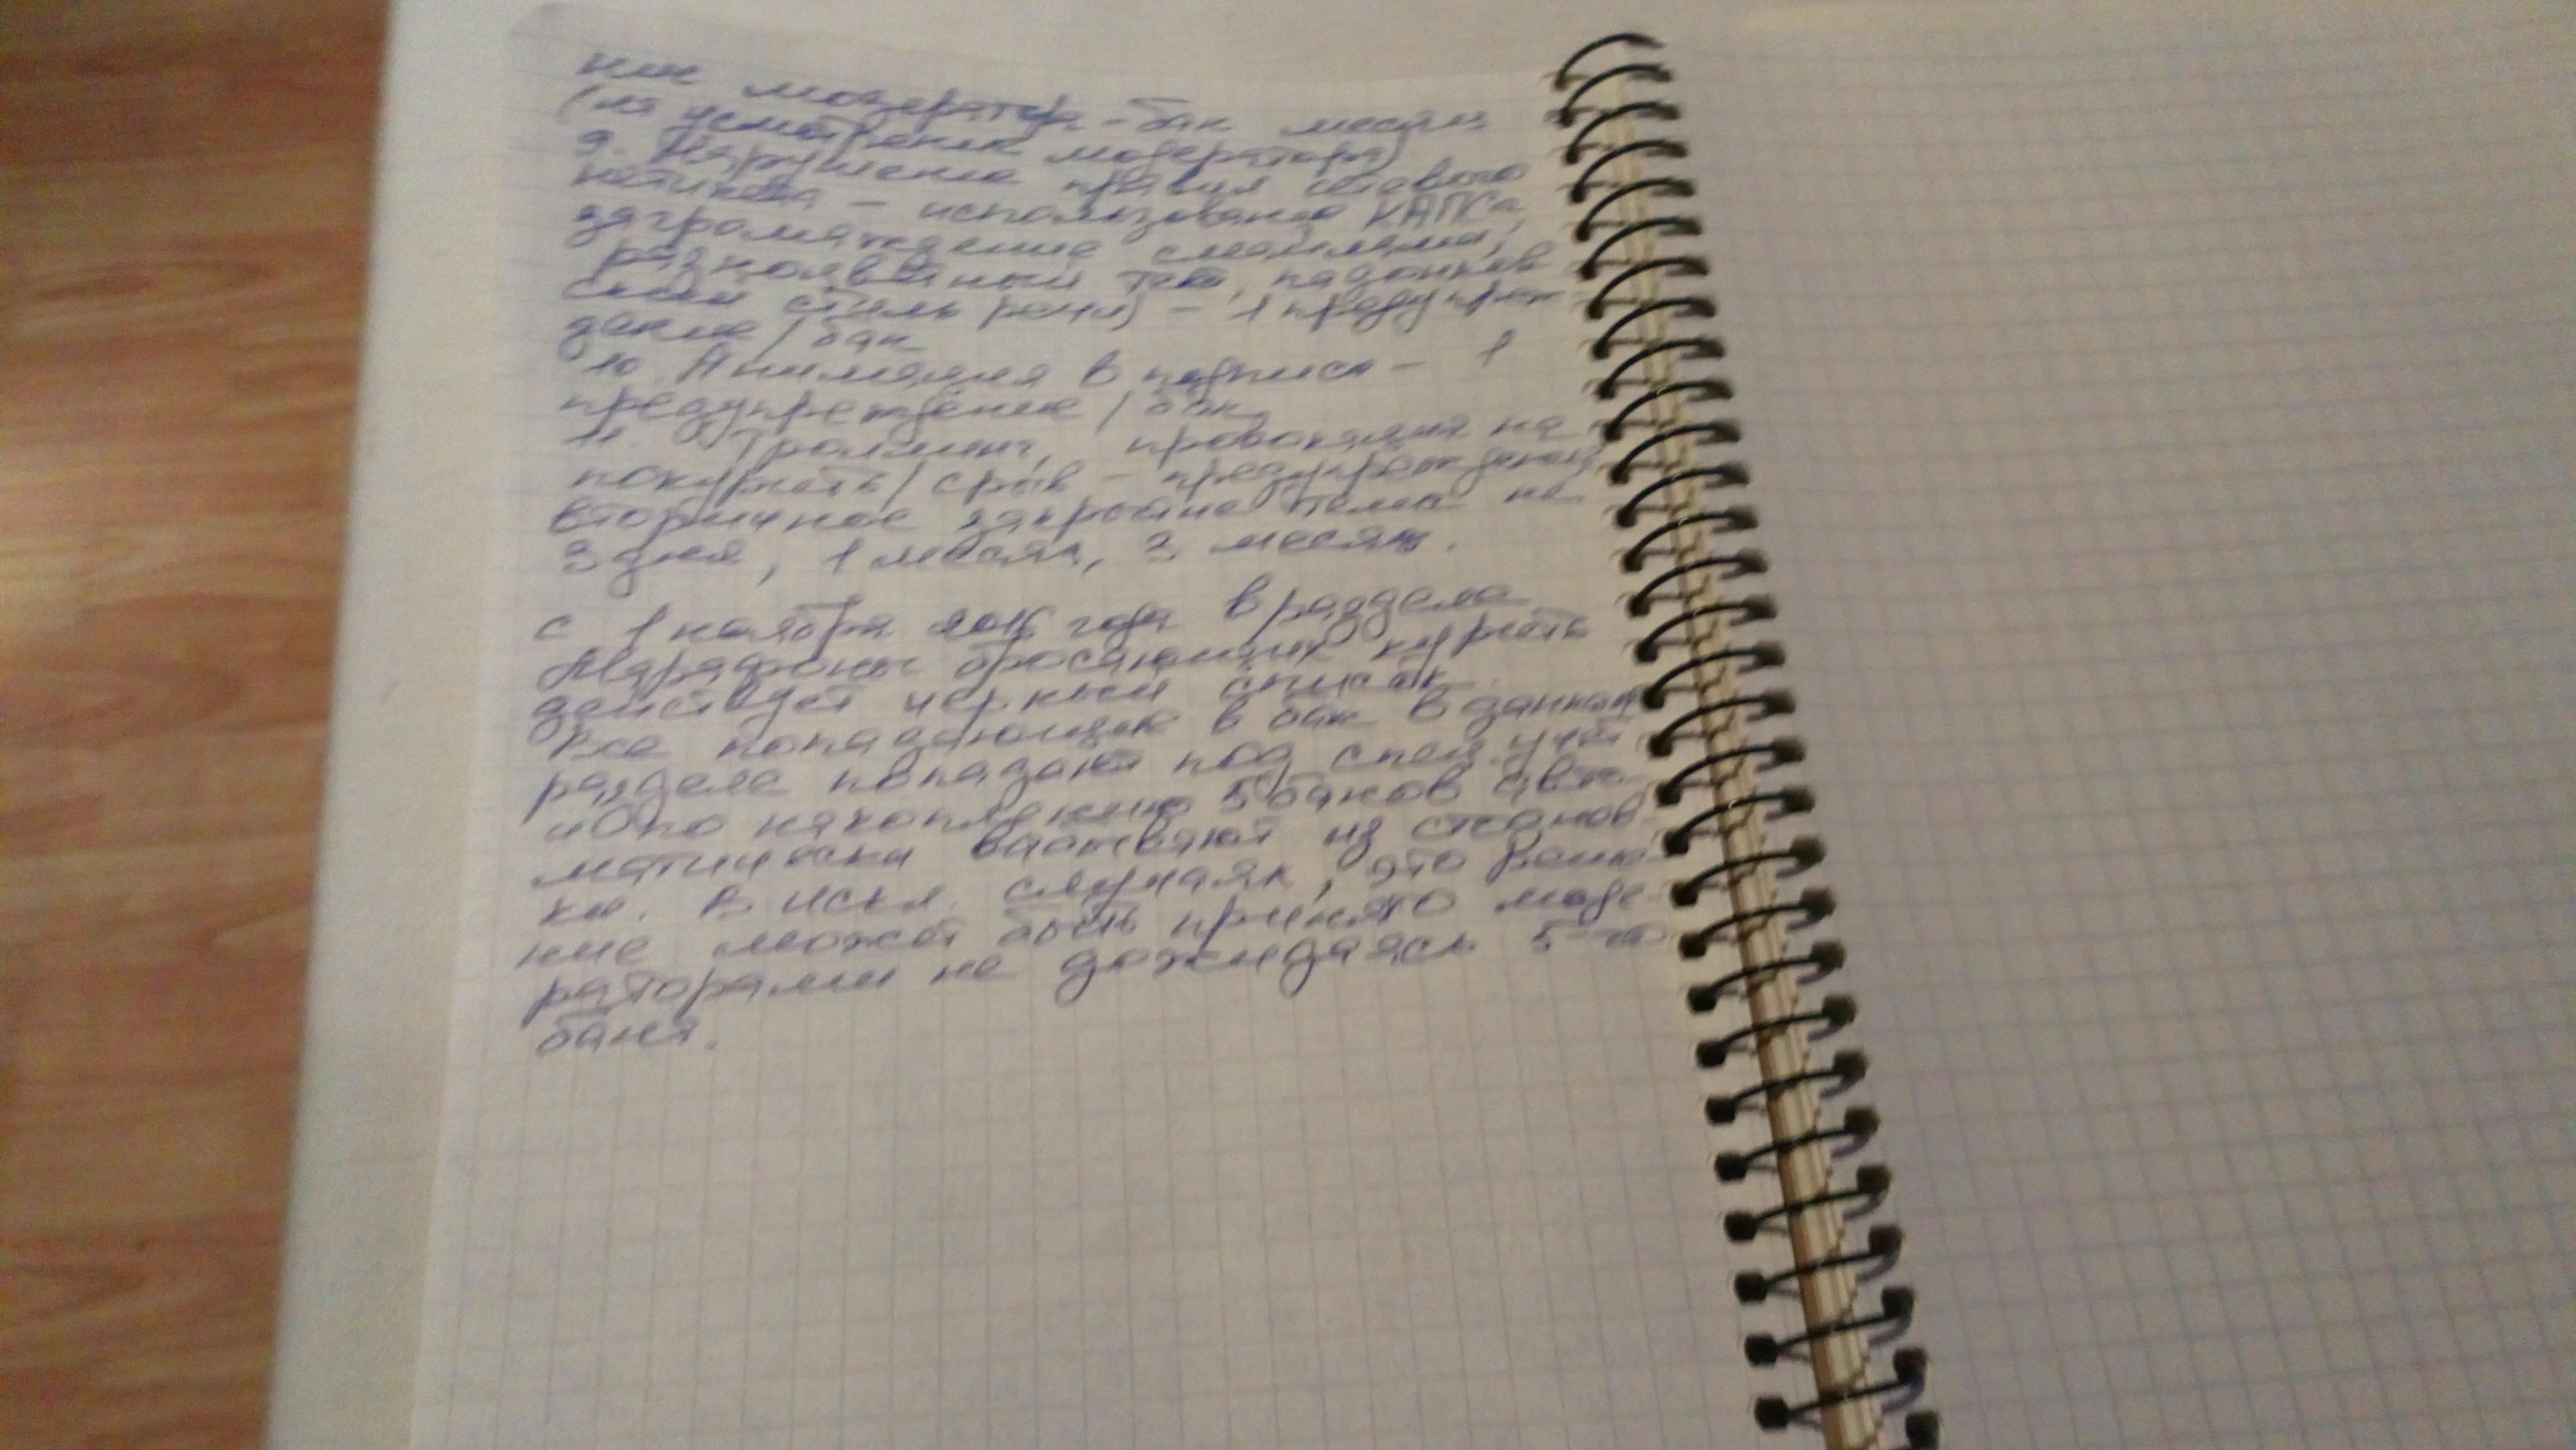 ние модератора - бан месяц
(на усмотрение модератора)
9. Нарушение правил сетевого
нетикета - использование КАПСа,
заграмаждение смайлами,
разноцветный текст, падонков
ский стиль речи) - 1 предупреж-
дение / бан
10. Анимация в подписи - 1
предупреждение / бан.
11. Троллинг, провокация на
покурить / срыв - предупреждение,
вторичное закрытие темы на
3 дня, 1 месяц, 3 месяца.
С 1 ноября года в разделе
Марафоны бросающих курить
действует черный список.
Все попадающие в бан в данном
разделе попадают под спец. учёт
и по накоплению 5 банов авто-
матически вылетают из
ки. В искл. случаях, это реше-
ние может быть принято моде-
раторами не дожидаясь 5-го
бана.